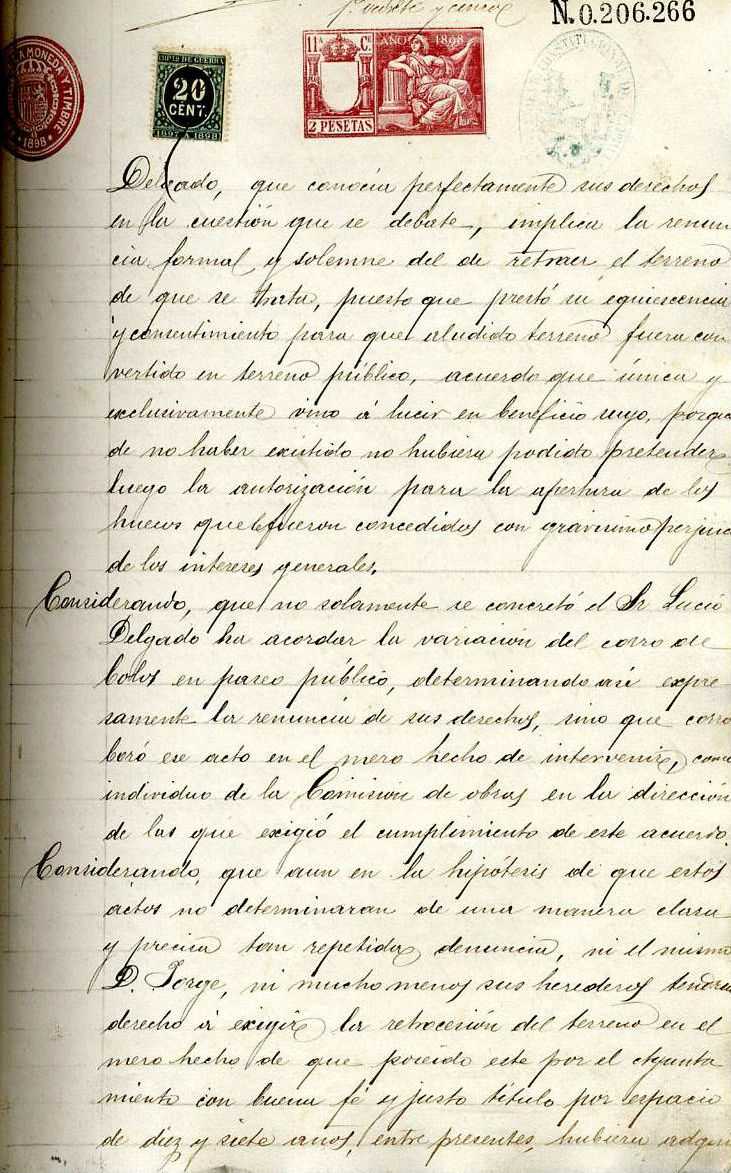 N.0.206.266
IMPTO DE GUERRA
20
CENT.
1897 A 1898
11ª Cᴱ
AÑO 1898
2 PESETAS
MONEDA Y TIMBRE
1898
Delgado, que conocía perfectamente sus derechos
en la cuestión que se debate, implica la renun
cia formal y solemne del de retraer el terreno
de que se trata, puesto que prestó su equiescencia
y consentimiento para que aludido terreno fuera con
vertido en terreno público, acuerdo que única y
exclusivamente vino á lucir en beneficio suyo, porque
de no haber existido no hubiera podido pretender
luego la autorización para la apertura de los
huecos que le fueron concedidos con gravisimo perjuic
de los intereses generales.
Considerando, que no solamente se concretó el Sr Lucio
Delgado ha acordar la variación del corro de
bolos en paseo público, determinando asi expre
samente la renuncia de sus derechos, sino que corro
boró ese acto en el mero hecho de intervenir, como
individuo de la Comisión de obras en la dirección
de las que exigió el cumplimiento de este acuerdo.
Considerando, que aun en la hipótesis de que estos
actos no determinaran de una manera clara
y precisa tan repetida denuncia, ni el mismo
D. Jorge, ni mucho menos sus herederos tendrian
derecho á exigir la retrocesión del terreno en el
mero hecho de que poseido este por el Ayunta
miento con buena fé y justo título por espacio
de diez y siete años, entre presentes, hubiera adqui